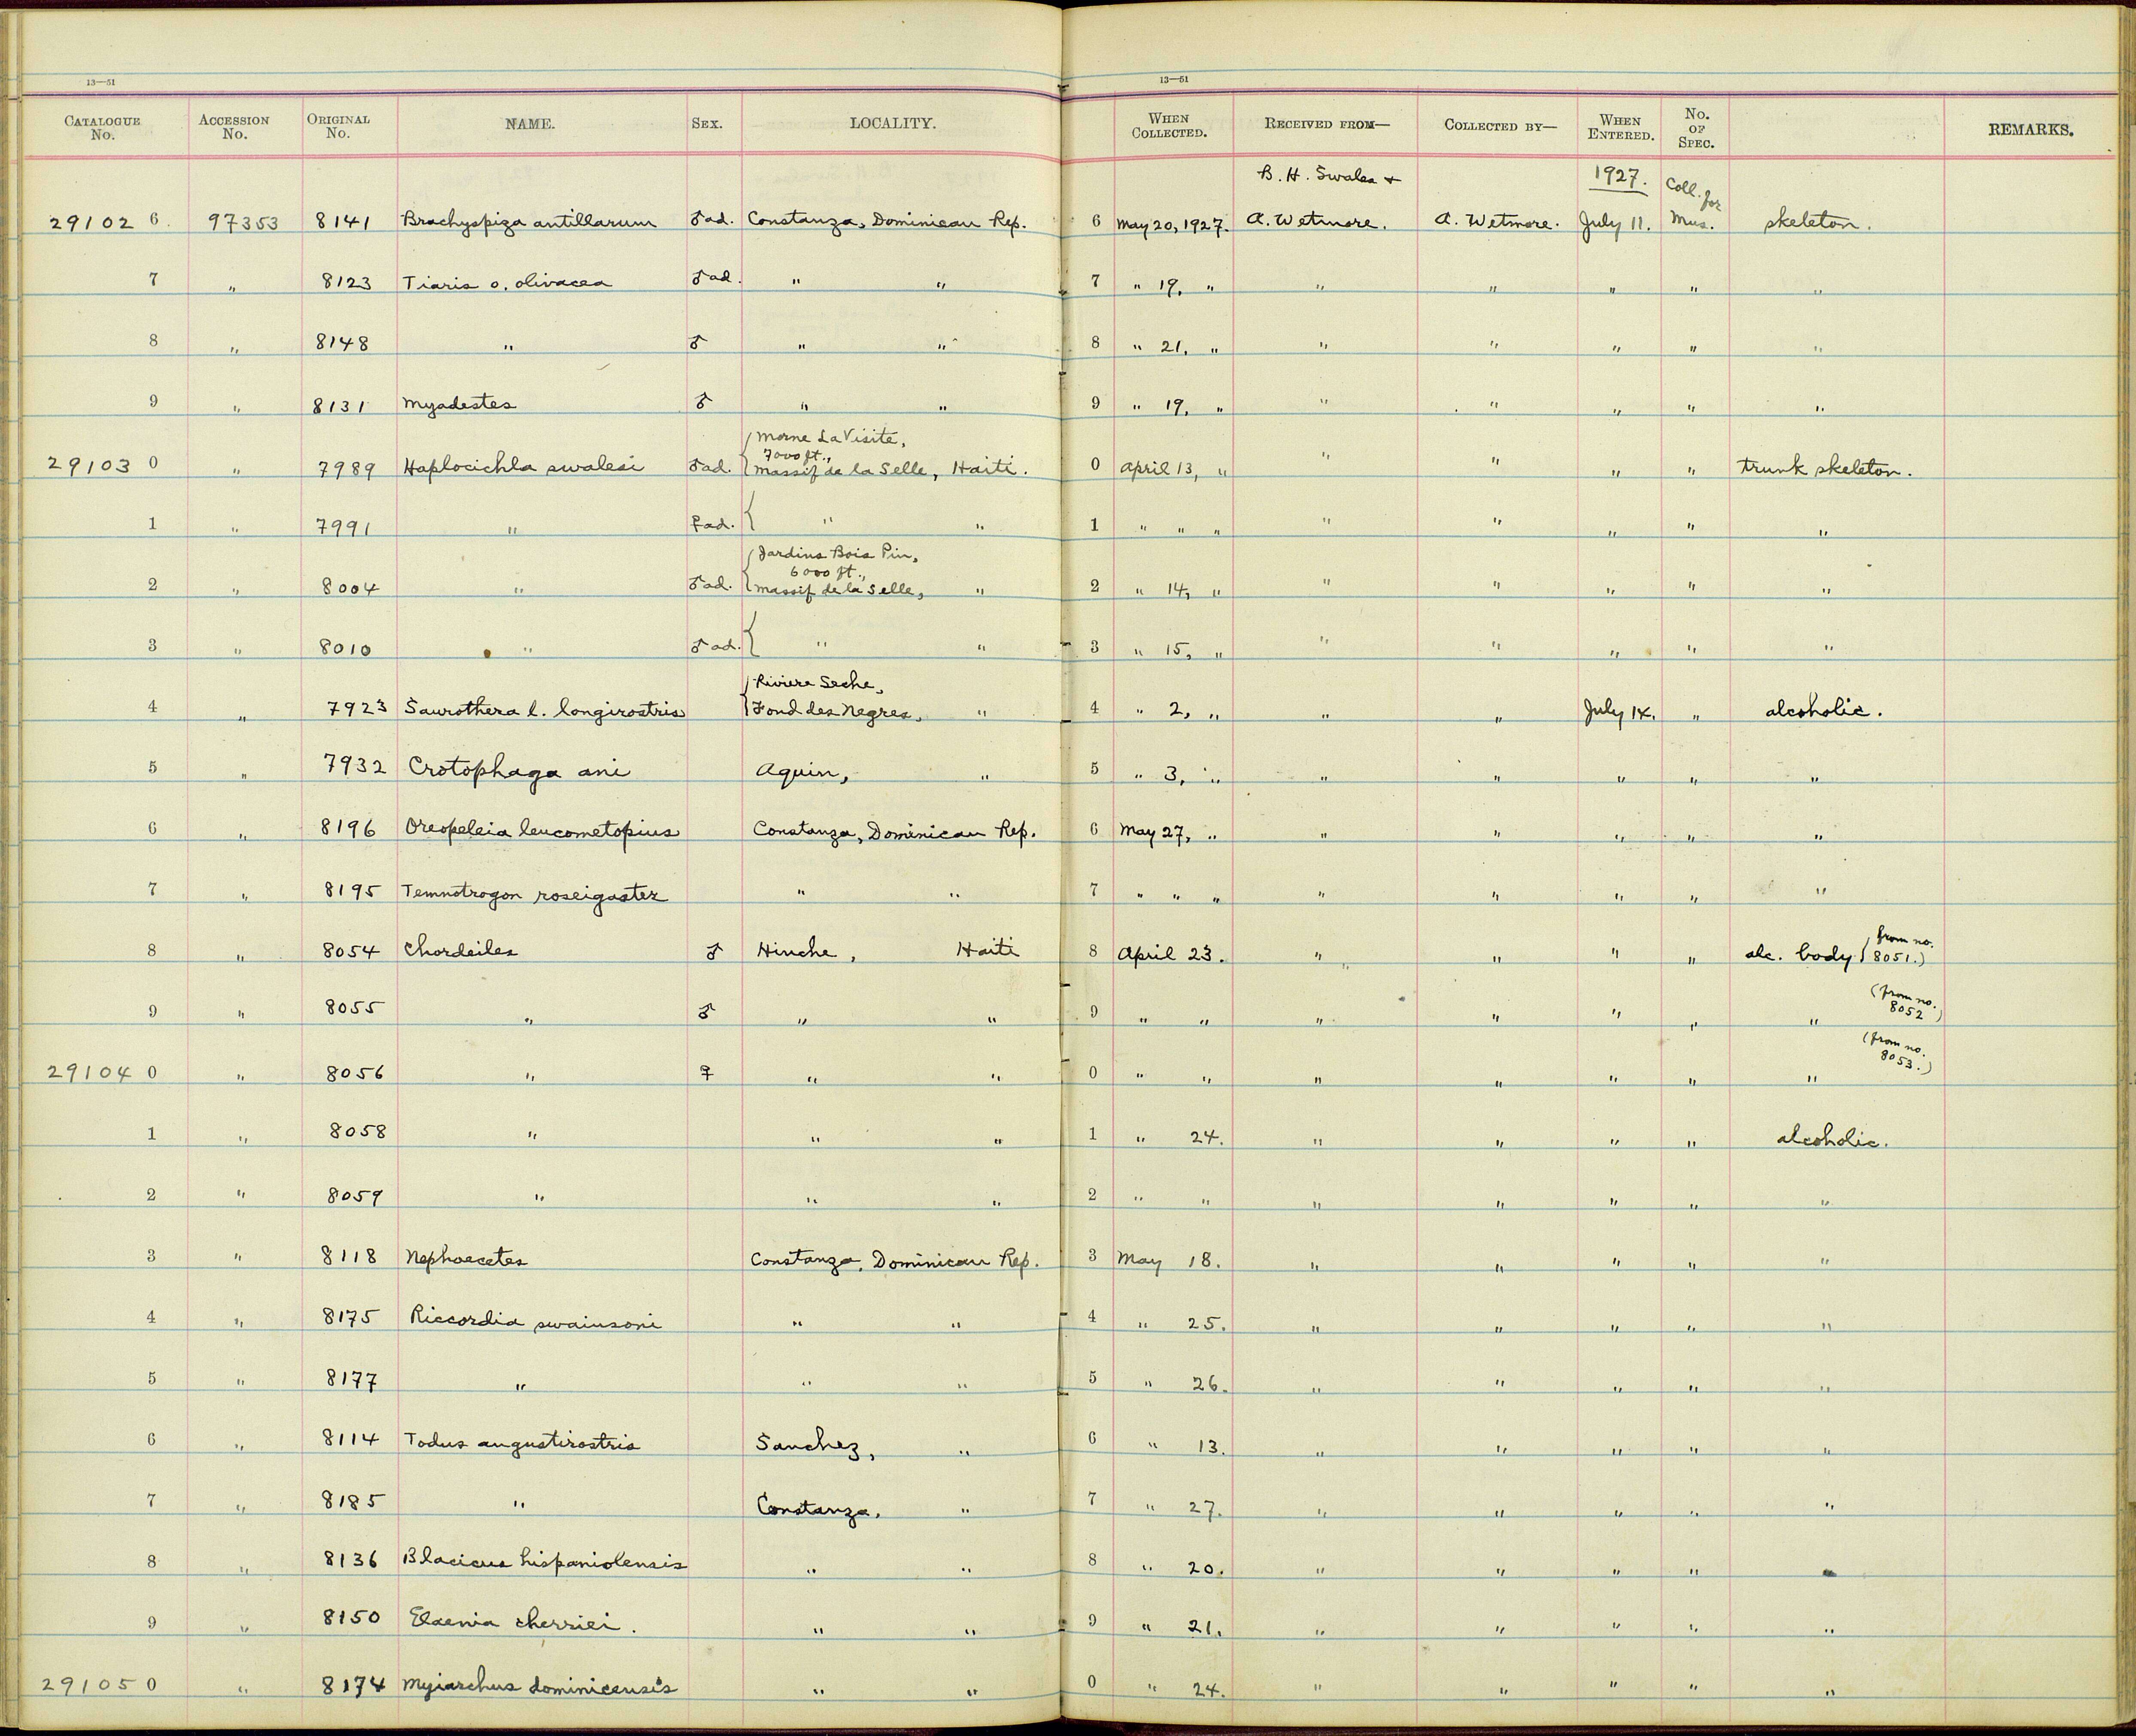 13—51 13—51
CATALOGUE No. ACCESSION No. ORIGINAL No. NAME. SEX. LOCALITY. WHEN COLLECTED. RECEIVED FROM— COLLECTED BY— WHEN ENTERED. No. OF SPEC. REMARKS.
B. H. Swales + 1927. Coll. for
29102 6 97353 8141 Brachyspiza antillarum ♂ad. Constanza, Dominican Rep. 6 May 20, 1927. A. Wetmore. A. Wetmore. July 11. Mus. skeleton.
7 " 8123 Tiaris o. olivacea ♂ad. " " 7 " 19, " " " " " "
8 " 8148 " ♂ " " 8 " 21, " " " " " "
9 " 8131 Myadestes ♂ " " 9 " 19, " " " " " "
Morne La Visite,
7000 ft.,
29103 0 " 7989 Haplocichla swalesi ♂ad. Massif de la Selle, Haiti. 0 April 13, " " " " " trunk skeleton.
1 " 7991 " ♀ad. { " " 1 " " " " " " " "
Jardins Bois Pin,
6000 ft.,
2 " 8004 " ♂ad. Massif de la Selle, " 2 " 14, " " " " " "
3 " 8010 " ♂ad. { " " 3 " 15, " " " " " "
Riviere Seche,
4 " 7923 Saurothera l. longirostris Fond des Negres, " 4 " 2, " " " July 14. " alcoholic.
5 " 7932 Crotophaga ani Aquin, " 5 " 3, " " " " " "
6 " 8196 Oreopeleia leucometopius Constanza, Dominican Rep. 6 May 27, " " " " " "
7 " 8195 Temnotrogon roseigaster " " 7 " " " " " " " "
8 " 8054 Chordeiles ♂ Hinche, Haiti 8 April 23. " " " " alc. body (from no. 8051.)
9 " 8055 " ♂ " " 9 " " " " " " " (from no. 8052)
29104 0 " 8056 " ♀ " " 0 " " " " " " " (from no. 8053.)
1 " 8058 " " " 1 " 24. " " " " alcoholic.
2 " 8059 " " " 2 " " " " " " "
3 " 8118 Nephoecetes Constanza, Dominican Rep. 3 May 18. " " " " "
4 " 8175 Riccordia swainsoni " " 4 " 25. " " " " "
5 " 8177 " " " 5 " 26. " " " " "
6 " 8114 Todus angustirostris Sanchez, " 6 " 13. " " " " "
7 " 8185 " Constanza, " 7 " 27. " " " " "
8 " 8136 Blacicus hispaniolensis " " 8 " 20. " " " " "
9 " 8150 Elaenia cherriei. " " 9 " 21. " " " " "
29105 0 " 8174 Myiarchus dominicensis " " 0 " 24. " " " " "